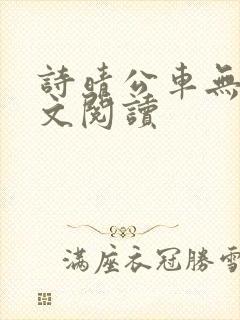 詩晴公車無
文閱讀
滿座衣冠勝雪